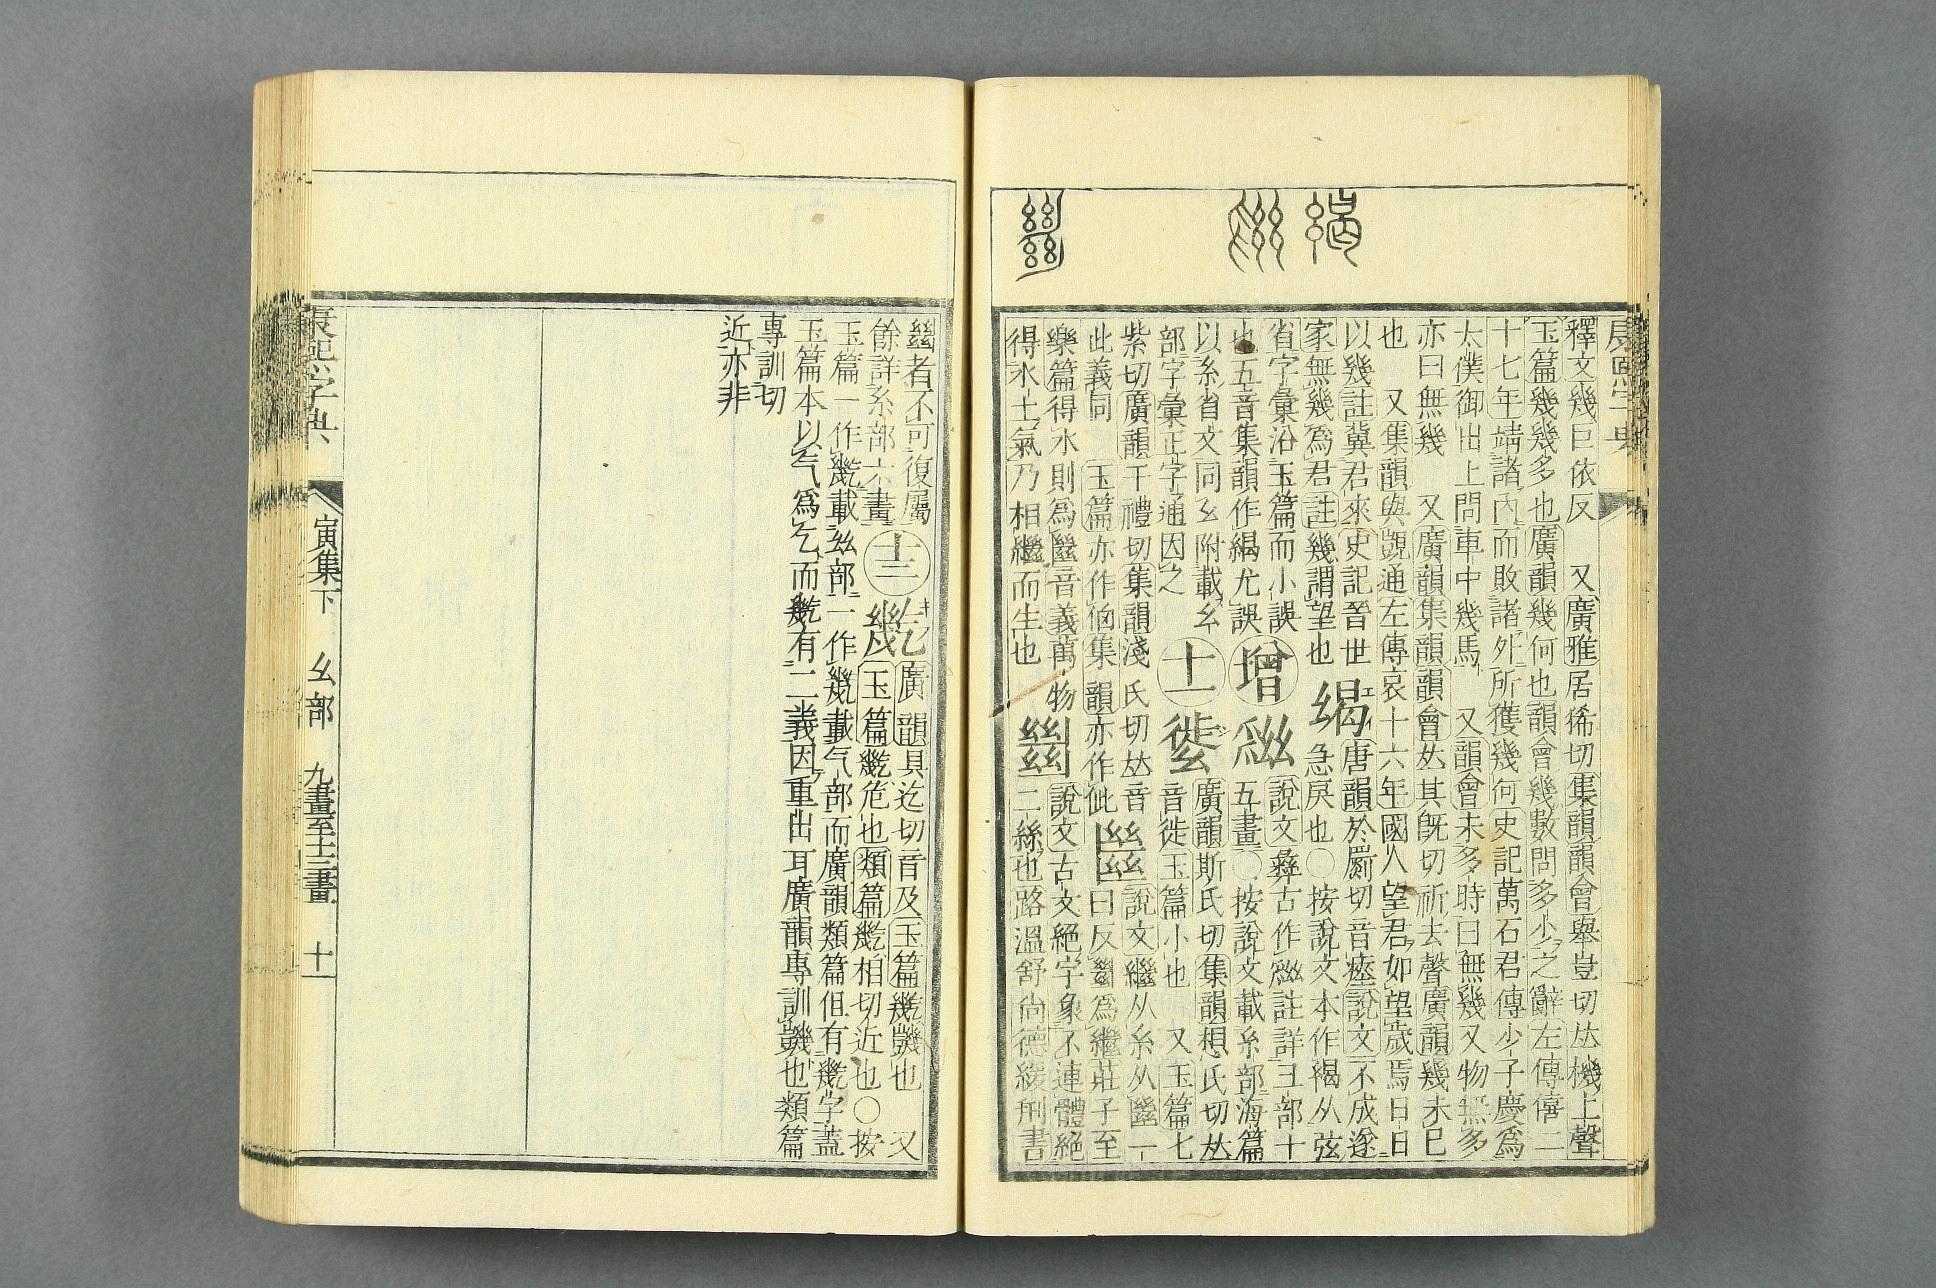 康熙字典
釋文幾巨依反 又廣雅居狶切集韻韻會舉豈切𠀤機上聲
玉篇幾幾多也廣韻幾何也韻會幾數問多少之辭左傳僖二
十七年靖諸內而敗諸外所獲幾何史記萬石君傳少子慶爲
太僕御出上問車中幾馬 又韻會未多時曰無幾又物無多
亦曰無幾 又廣韻集韻韻會𠀤其旣切祈去聲廣韻幾未已
也 又集韻與覬通左傳哀十六年國人望君如望歲焉日日
以幾註冀君來史記晉世
家無幾爲君註幾謂望也
唐韻於罽切音瘞說文不成遂
急戾也○按說文本作从弦
省字彙沿玉篇而小誤
也五音集韻作尤誤
增
𢇁
說文彝古作𢇁註詳彐部十
五畫○按說文載糸部海篇
以糸省文同幺附載幺
部字彙正字通因之
十一
廣韻斯氏切集韻想氏切𠀤
音徙玉篇小也 又玉篇七
紫切廣韻千禮切集韻淺氏切𠀤音
此義同 玉篇亦作集韻亦作佌
㡭
說文繼从糸从㡭一
曰反𢇍爲繼莊子至
樂篇得水則爲㡭音義萬物
得水土氣乃相繼而生也
𢇍
說文古文絕字象不連體絕
二絲也路溫舒尚德緩刑書
𢇍者不可復屬
餘詳糸部六畫
十二
キツ
廣韻具迄切音及玉篇也 又
玉篇危也類篇相切近也○按
玉篇一作載玆部一作載气部而廣韻類篇但有字蓋
玉篇本以气爲乞而有二義因重出耳廣韻專訓也類篇
專訓切
近亦非
康熙字典 寅集下 幺部 九畫至十二畫 十一